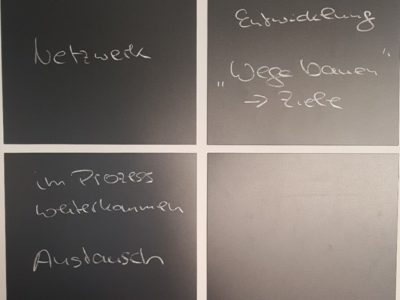 Netzwerk
Entwicklung
„Wege bauen"
→ Ziele
im Prozess
weiterkommen
Austausch